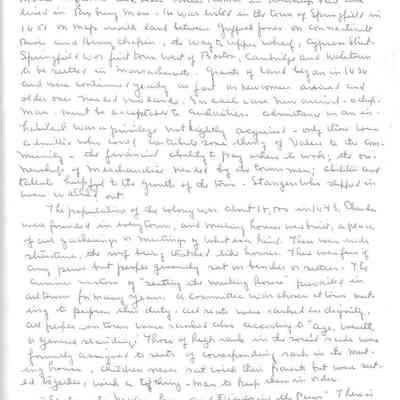 lived in Roxbury Mass. He was listed in the town of Springfield in
1651 on maps with land between Griffith Jones on Connecticut
River and Henry Chapin, the way to upper wharf, Cypress Street.
Springfield was first town west of Boston, Cambridge and Watertown
to be settled in Massachusetts. Grants of land began in 1636
and were continued yearly as for as newcomers arrived and
older ones needed . In each case new arrival -
man - must be acceptable to authorities. admittance as an in-
habitant was a privilege not lightly acquired - only those were
admitted who could contribute something of value to the com-
munity - the financial ability to pay when to work; the ow-
nership of merchandise needed by the town men; abilities and
talent helpful to the growth of the town. Strangers who slipped in
were out.
The population of the colony was about 15,000 in 1643. Church
were founded in every town, and meeting houses were built, a place
of all gatherings or meetings of whatever kind. These were rude
structure, the roof being thatched like houses. There were few if
any pews but people generally sat on benches or settees. The
curious custom of "seating the meeting house" prevailed in
all towns for many years. A committee was chosen at town meet-
ing to perform this duty - all seats were ranked in dignity,
all people in town were ranked also according to "age, wealth
& general standing." Those of high rank in the social scale were
formally assigned to seats of corresponding rank in the meet-
ing house, children never sat with their parents but were seat-
ed together, with a tything-man to keep them in order.
the Pews" There is